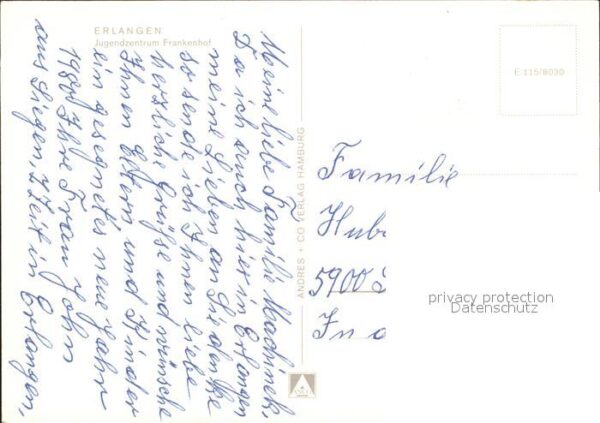 ERLANGEN
Jugendzentrum Frankenhof
Meine liebe Familie Machinek,
Da ich auch hier in Erlangen
meine Lieben an Sie denke
so sende ich Ihnen liebe
herzliche Grüße und wünsche
Ihnen Eltern und Kinder
ein gesegnetes neue Jahr
1980 Ihre Frau John
aus Siegen z Zeit in Erlangen,
ANDRES + CO VERLAG HAMBURG
E 115/8030
Familie
Hub
5900 S
In d
privacy protection
Datenschutz